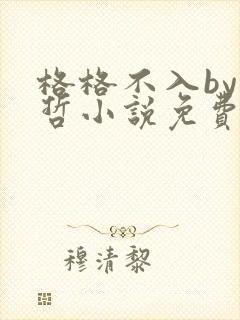 格格不入by
哲小說免費
穆清黎